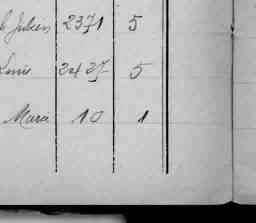 Julien 2371 5
Louis 2437 5
Marie 10 1